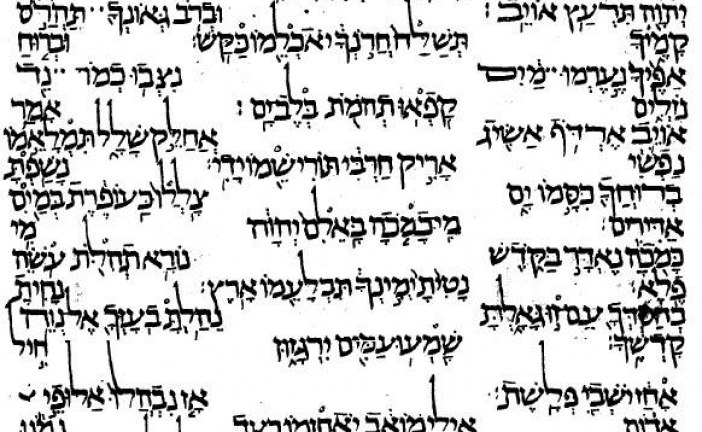 יְהוָה תִּרְעַץ אוֹיֵב׃ וּבְרֹב גְּאוֹנְךָ תַּהֲרֹס
קָמֶיךָ תְּשַׁלַּח חֲרֹנְךָ יֹאכְלֵמוֹ כַּקַּשׁ׃ וּבְרוּחַ
אַפֶּיךָ נֶעֶרְמוּ מַיִם נִצְּבוּ כְמוֹ נֵד
נֹזְלִים קָפְאוּ תְהֹמֹת בְּלֶב יָם׃ אָמַר
אוֹיֵב אֶרְדֹּף אַשִּׂיג אֲחַלֵּק שָׁלָל תִּמְלָאֵמוֹ
נַפְשִׁי אָרִיק חַרְבִּי תּוֹרִישֵׁמוֹ יָדִי׃ נָשַׁפְתָּ
בְרוּחֲךָ כִּסָּמוֹ יָם צָלֲלוּ כַּעוֹפֶרֶת בְּמַיִם
אַדִּירִים מִי כָמֹכָה בָּאֵלִם יְהוָה מִי
כָּמֹכָה נֶאְדָּר בַּקֹּדֶשׁ נוֹרָא תְהִלֹּת עֹשֵׂה
פֶלֶא נָטִיתָ יְמִינְךָ תִּבְלָעֵמוֹ אָרֶץ׃ נָחִיתָ
בְחַסְדְּךָ עַם זוּ גָּאָלְתָּ נֵהַלְתָּ בְעָזְּךָ אֶל נְוֵה
קָדְשֶׁךָ׃ שָׁמְעוּ עַמִּים יִרְגָּזוּן חִיל
אָחַז יֹשְׁבֵי פְּלָשֶׁת׃ אָז נִבְהֲלוּ אַלּוּפֵי
אֱדוֹם אֵילֵי מוֹאָב יֹאחֲזֵמוֹ רָעַד